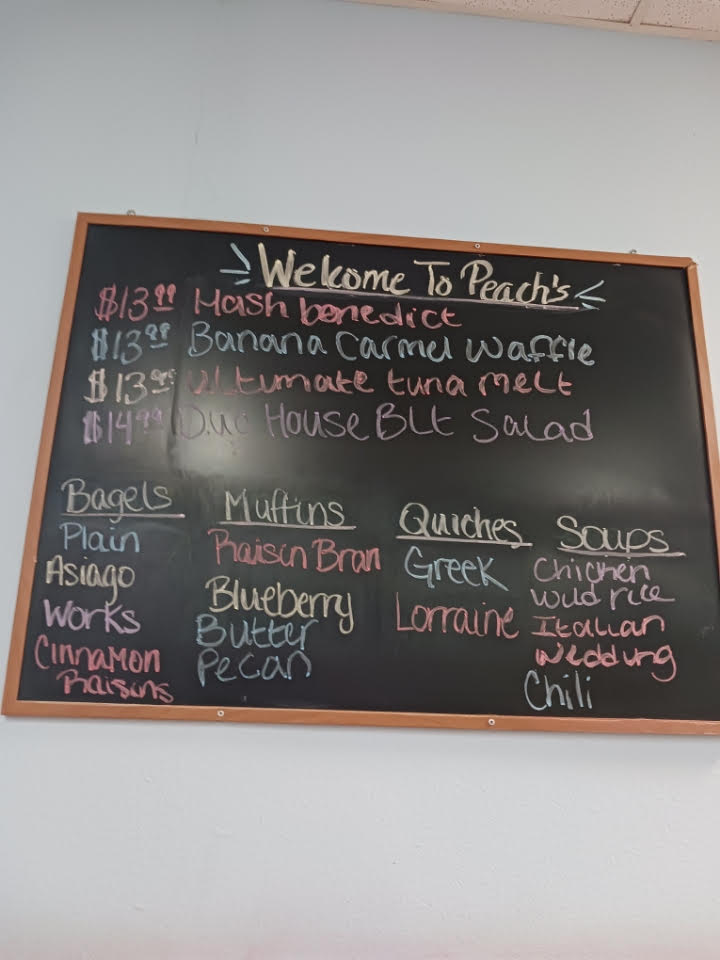 Welcome To Peach's
$13.99 Hash benedict
$13.99 Banana Carmel Waffle
$13.99 Ultimate tuna melt
$14.99 House BLt Salad
Bagels
Plain
Asiago
Works
Cinnamon
Raisins
Muffins
Raisin Bran
Blueberry
Butter
Pecan
Quiches
Greek
Lorraine
Soups
Chicken
Wild rice
Italian
Wedding
Chili